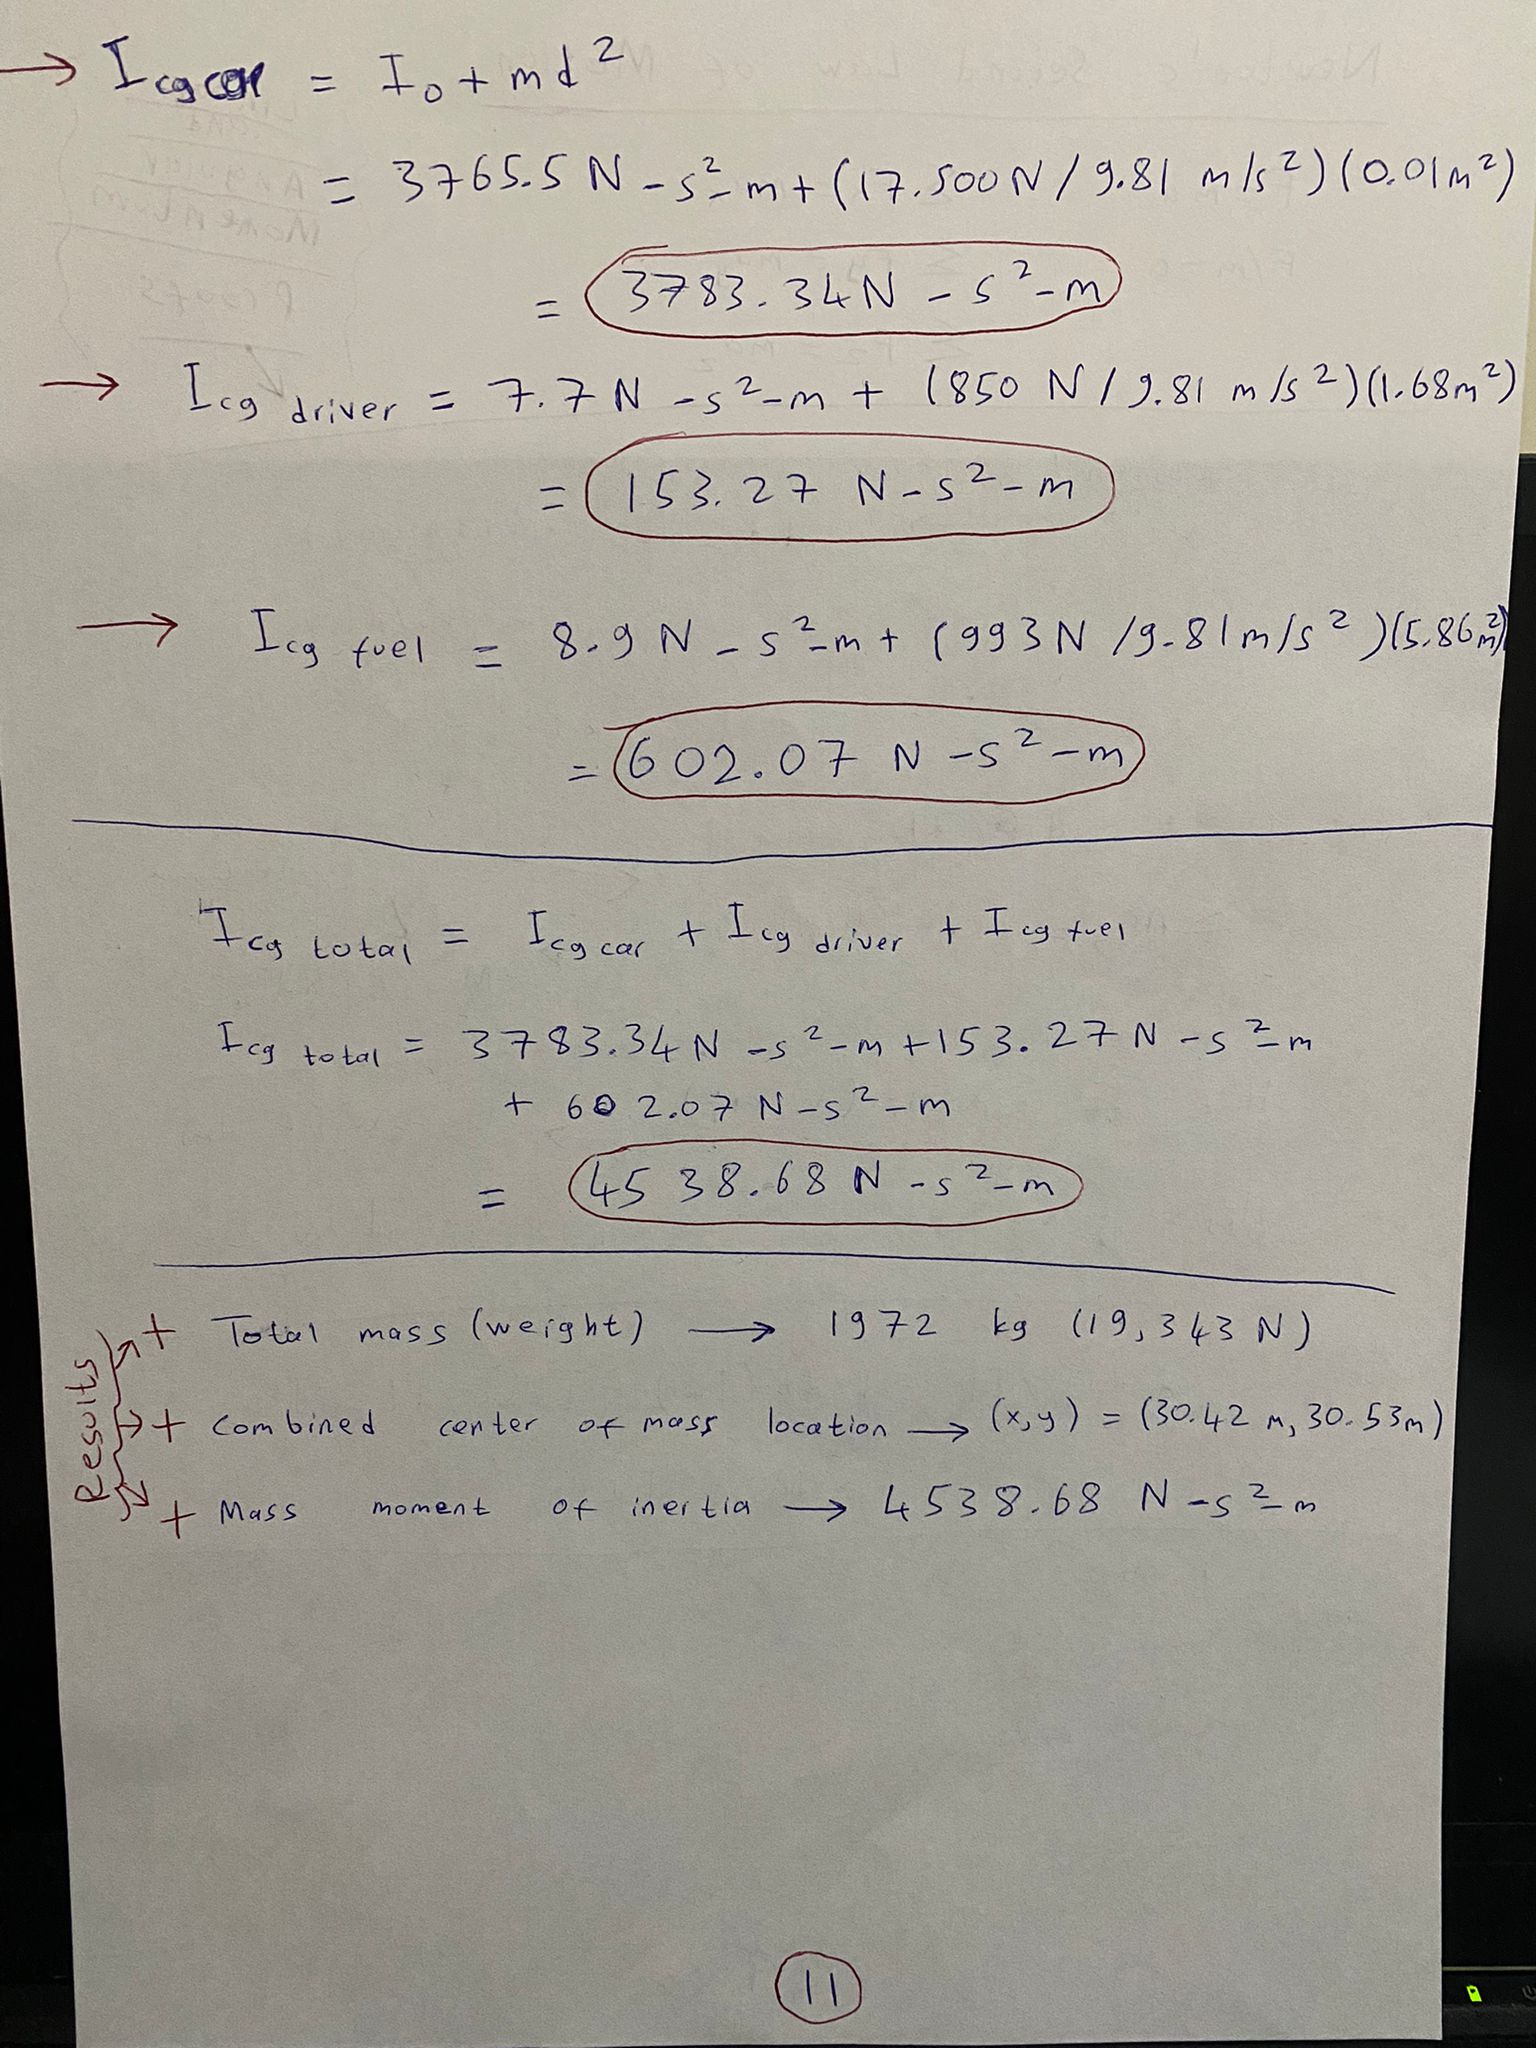 → I cg car = I₀ + md²
= 3765.5 N-s²-m + (17.500N / 9.81 m/s²)(0.01m²)
= 3783.34N-s²-m
→ I cg driver = 7.7 N-s²-m + (850 N / 9.81 m/s²)(1.68m²)
= 153.27 N-s²-m
→ I cg fuel = 8.9 N-s²-m + (993N / 9.81m/s²)(5.86m²)
= 602.07 N-s²-m
I cg total = I cg car + I cg driver + I cg fuel
I cg total = 3783.34N-s²-m + 153.27N-s²-m
+ 602.07 N-s²-m
= 4538.68 N-s²-m
Results
+ Total mass (weight) → 1972 kg (19,343 N)
+ Combined center of mass location → (x,y) = (30.42 m, 30.53m)
+ Mass moment of inertia → 4538.68 N-s²-m
11